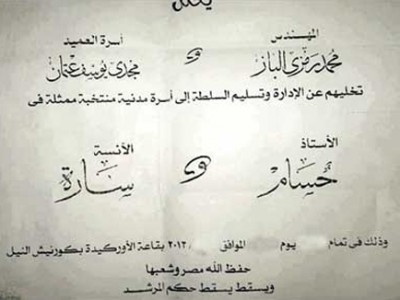 يعلن
المهندس أسرة العميد
محمد رمزى الباز و مجدى يوسف عثمان
تخليهم عن الإدارة وتسليم السلطة إلى أسرة مدنية منتخبة ممثلة فى
الأستاذ الأنسة
حسام و سارة
وذلك فى تمام يوم الموافق بقاعة الأوركيدة بكورنيش النيل
حفظ الله مصر وشعبها
ويسقط يسقط حكم المرشد